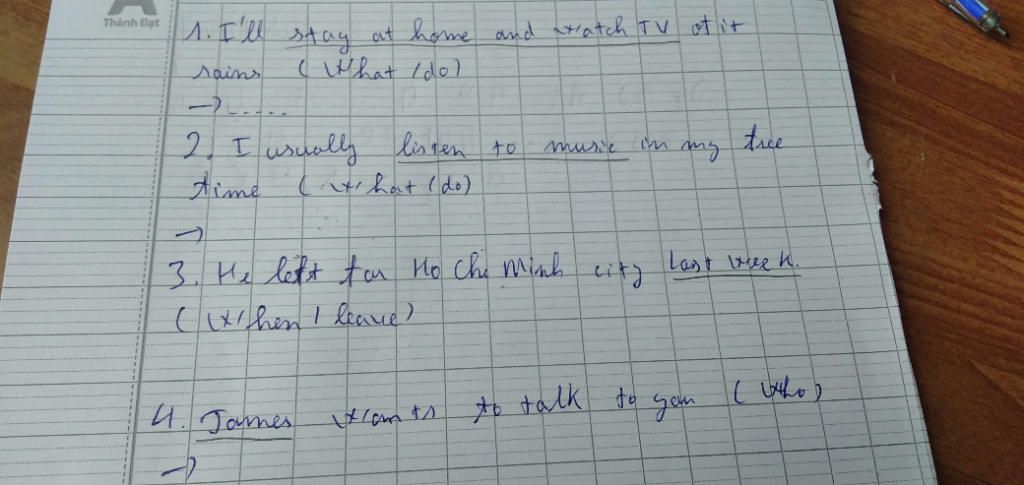 Thành Đạt
1. I'll stay at home and watch TV of it
rains ( What / do)
→ .....
2. I usually listen to music in my free
time ( What / do)
→
3. He left for Ho Chi Minh city last week.
( When / leave)
4. James wants to talk to you ( Who)
→